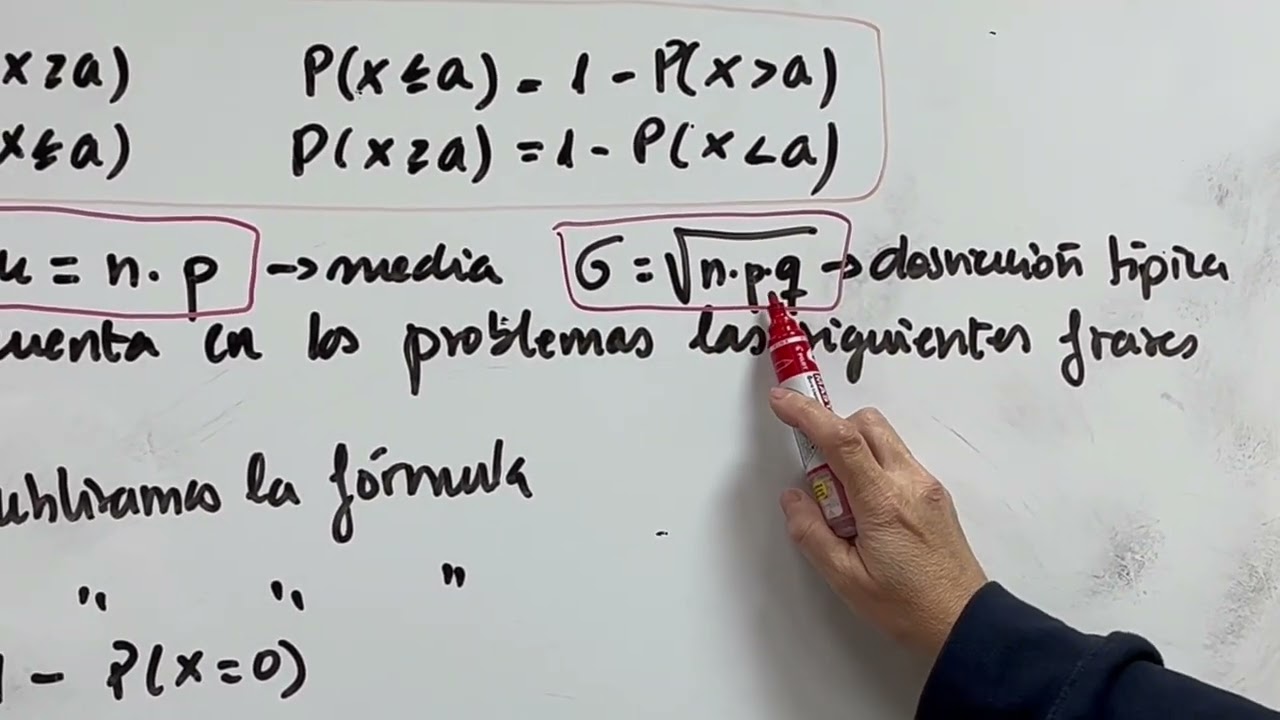 x≥a) P(x≤a) = 1 - P(x>a)
x≤a) P(x≥a) = 1 - P(x<a)
μ = n·p → media σ = √n·p·q → desviación típica
uenta en los problemas las siguientes frases
utilizamos la fórmula
" " "
1 - P(x=0)